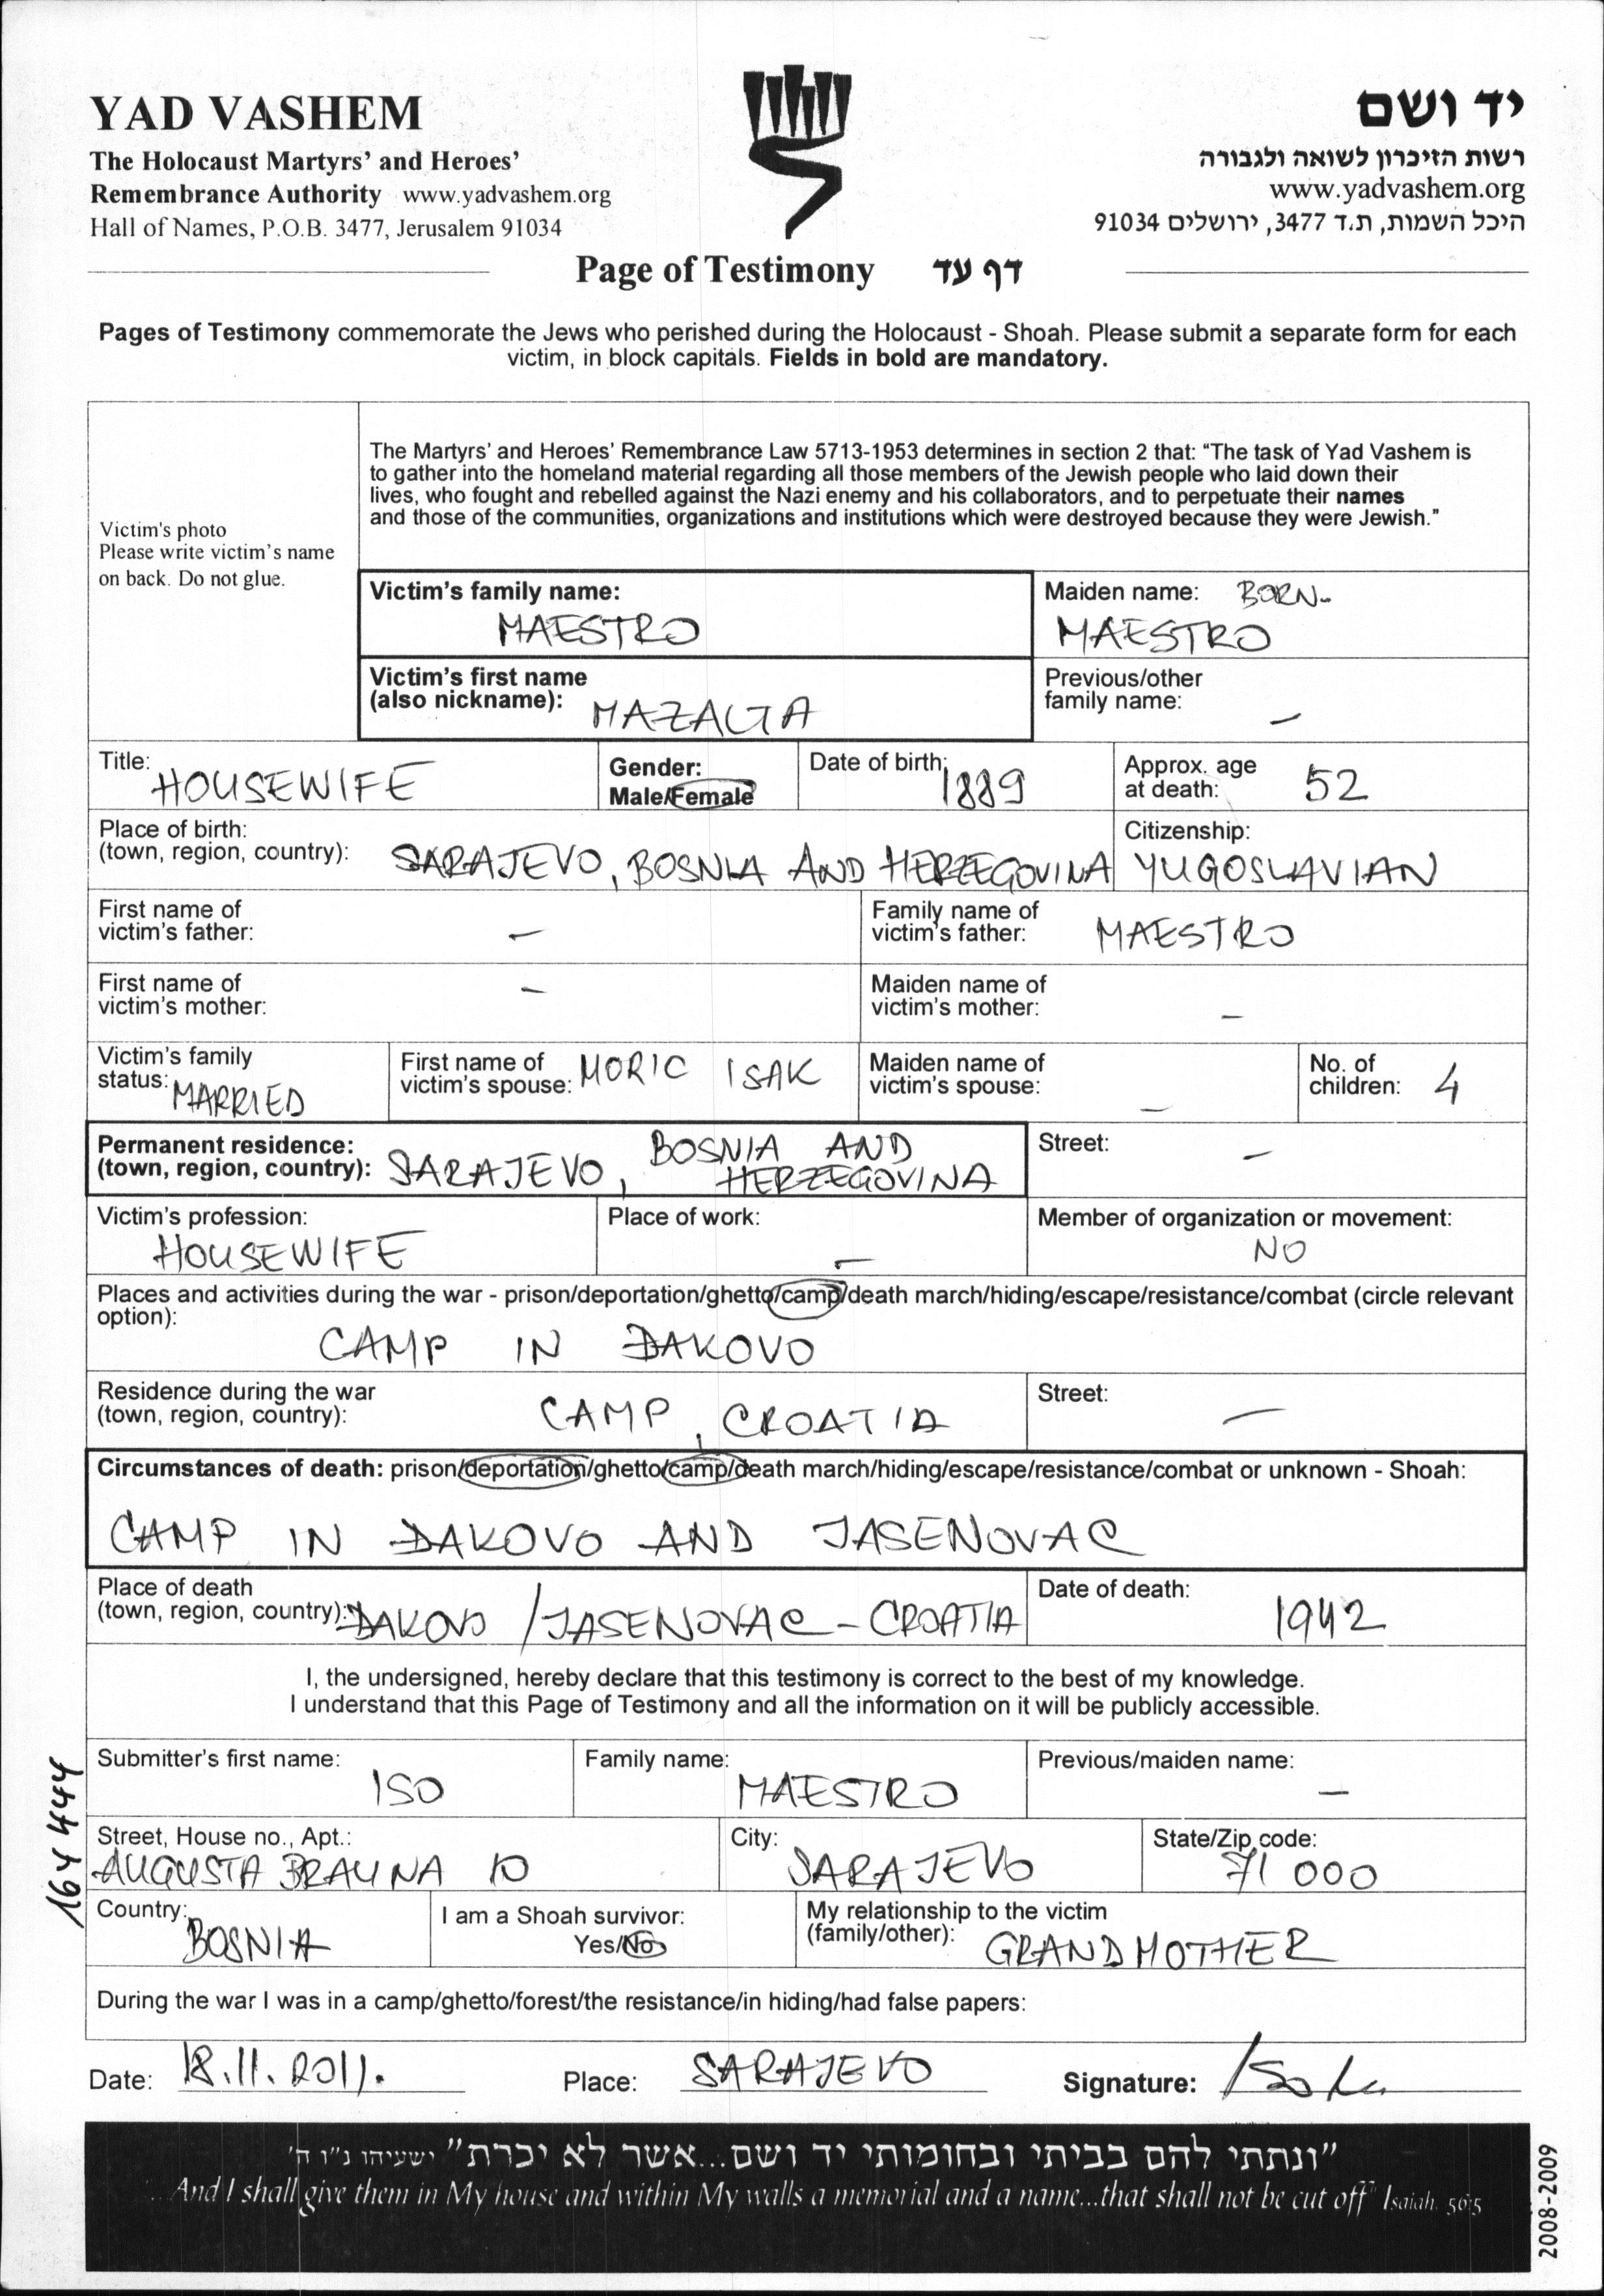 YAD VASHEM
The Holocaust Martyrs' and Heroes'
Remembrance Authority www.yadvashem.org
Hall of Names, P.O.B. 3477, Jerusalem 91034
יד ושם
רשות הזיכרון לשואה ולגבורה
www.yadvashem.org
היכל השמות, ת.ד 3477, ירושלים 91034
Page of Testimony דף עד
Pages of Testimony commemorate the Jews who perished during the Holocaust - Shoah. Please submit a separate form for each
victim, in block capitals. Fields in bold are mandatory.
Victim's photo
Please write victim's name
on back. Do not glue.
The Martyrs' and Heroes' Remembrance Law 5713-1953 determines in section 2 that: "The task of Yad Vashem is
to gather into the homeland material regarding all those members of the Jewish people who laid down their
lives, who fought and rebelled against the Nazi enemy and his collaborators, and to perpetuate their names
and those of the communities, organizations and institutions which were destroyed because they were Jewish."
Victim's family name:
MAESTRO
Maiden name: BORN-
MAESTRO
Victim's first name
(also nickname): MAZALTA
Previous/other
family name: —
Title: HOUSEWIFE
Gender:
Male/Female
Date of birth: 1889
Approx. age
at death: 52
Place of birth:
(town, region, country): SARAJEVO, BOSNIA AND HERZEGOVINA
Citizenship:
YUGOSLAVIAN
First name of
victim's father: —
Family name of
victim's father: MAESTRO
First name of
victim's mother: —
Maiden name of
victim's mother: —
Victim's family
status: MARRIED
First name of
victim's spouse: MORIC ISAK
Maiden name of
victim's spouse: —
No. of
children: 4
Permanent residence:
(town, region, country): SARAJEVO, BOSNIA AND
HERZEGOVINA
Street: —
Victim's profession:
HOUSEWIFE
Place of work: —
Member of organization or movement:
NO
Places and activities during the war - prison/deportation/ghetto/camp/death march/hiding/escape/resistance/combat (circle relevant
option):
CAMP IN ĐAKOVO
Residence during the war
(town, region, country): CAMP, CROATIA
Street: —
Circumstances of death: prison/deportation/ghetto/camp/death march/hiding/escape/resistance/combat or unknown - Shoah:
CAMP IN ĐAKOVO AND JASENOVAC
Place of death
(town, region, country): ĐAKOVO / JASENOVAC - CROATIA
Date of death: 1942
I, the undersigned, hereby declare that this testimony is correct to the best of my knowledge.
I understand that this Page of Testimony and all the information on it will be publicly accessible.
Submitter's first name:
ISO
Family name:
MAESTRO
Previous/maiden name:
—
Street, House no., Apt.:
AUGUSTA BRAUNA 10
City:
SARAJEVO
State/Zip code:
71 000
Country:
BOSNIA
I am a Shoah survivor:
Yes/No
My relationship to the victim
(family/other): GRANDMOTHER
During the war I was in a camp/ghetto/forest/the resistance/in hiding/had false papers:
Date: 18.11.2011.
Place: SARAJEVO
Signature:
164 444
"ונתתי להם בביתי ובחומותי יד ושם...אשר לא יכרת" ישעיהו נ"ו ה'
...And I shall give them in My house and within My walls a memorial and a name...that shall not be cut off" Isaiah. 56:5
2008-2009